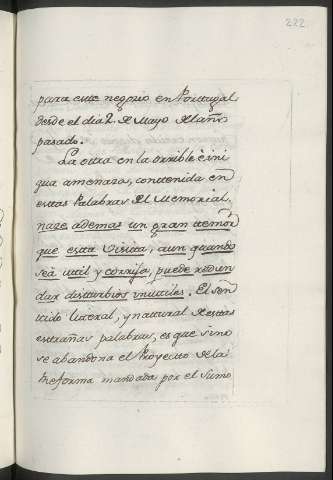 222
para este negocio en Portugal,
desde el dia 2. de Mayo del año
pasado.
La otra en la orrible è ini
qua amenaza, contenida en
estas Palabras del Memorial.
naze ademas un gran temor
que esta Visita, aun quando
sea util y corrija, puede redun
dar disturbios inutiles. El sen
tido literal, y natural de estas
estrañas palabras, es que si no
se abandona el Proyecto de la
Reforma mandada por el Sumo